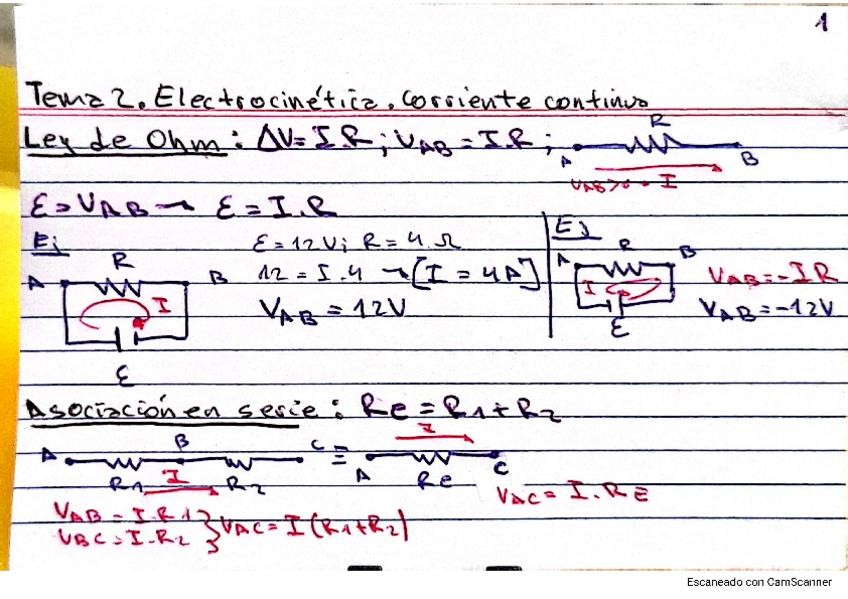 1
Tema 2. Electrocinética. Corriente continua
Ley de Ohm: ΔV=I.R; VAB=I.R;
R
A B
VAB>0 I
Ɛ=VAB → Ɛ=I.R
Ej
Ɛ=12V; R=4Ω
12=I.4 → [I=4A]
VAB=12V
R
A B
I
Ɛ
Ej
R
A B
I
Ɛ
VAB=-IR
VAB=-12V
Asociación en serie: Re=R1+R2
A B C ≡ A C
I
R1 R2 Re
I
VAC=I.RE
VAB=I.R1
VBC=I.R2 } VAC=I(R1+R2)
Escaneado con CamScanner